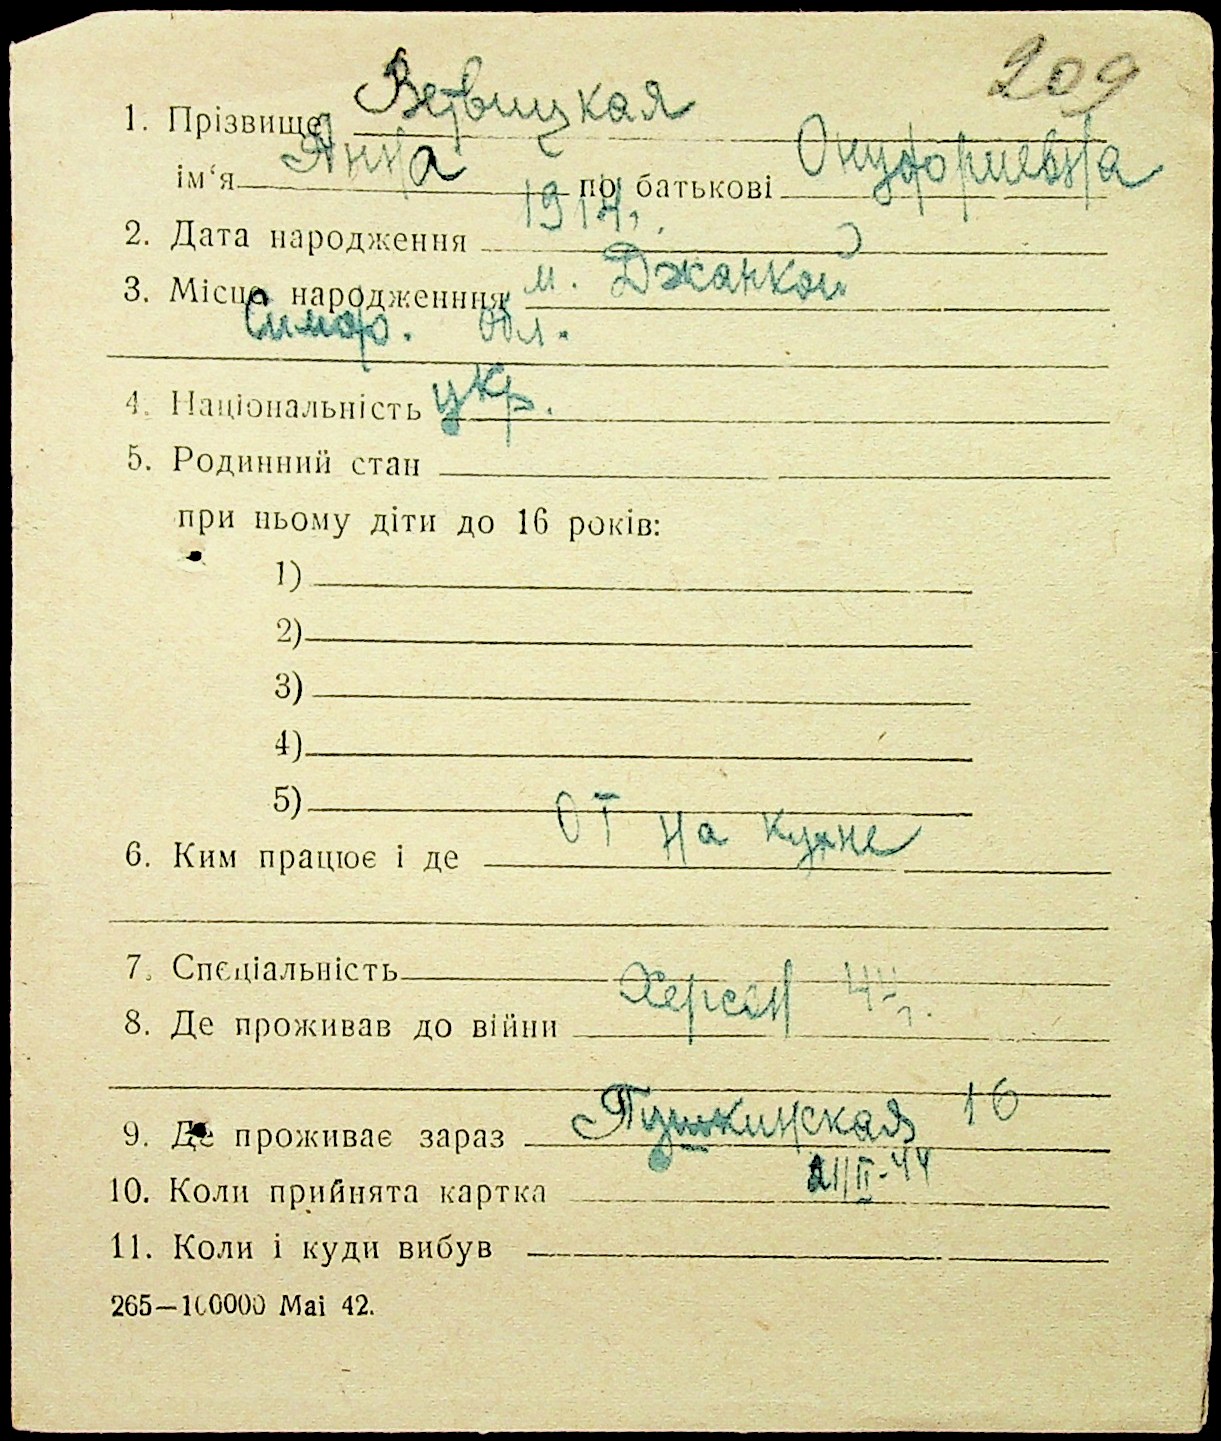 209
1. Прізвище Ветвицкая
ім‘я Анна по батькові Онуфриевна
2. Дата народження 1914г.
3. Місце народженння м. Джанкой
Симф. обл.
4. Національність укр.
5. Родинний стан
при ньому діти до 16 років:
1)
2)
3)
4)
5)
6. Ким працює і де ОТ на кухне
7. Спеціальність
8. Де проживав до війни Херсон 44 г.
9. Де проживає зараз Пушкинская 16
10. Коли прийнята картка 21/II-44
11. Коли і куди вибув
265—100000 Маі 42.